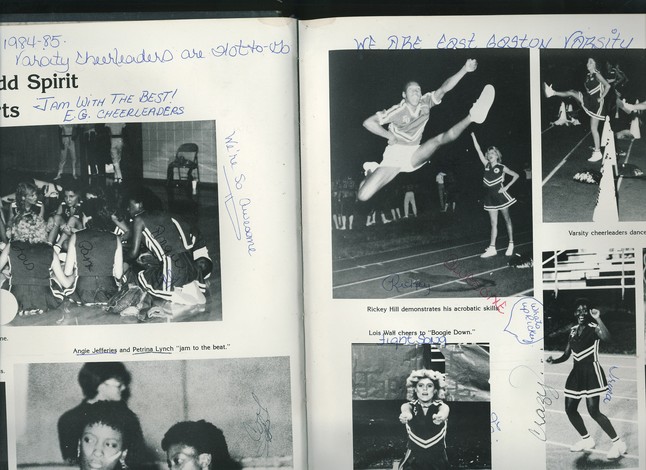 1984-85.
Varsity cheerleaders are Hot-to-
dd Spirit
rts
JAM WITH THE BEST!
E.G. CHEERLEADERS
We're So Awesome
ne.
Angie Jefferies and Petrina Lynch "jam to the beat."
WE ARE EAST GASTON VARSITY
Rickey
Rickey Hill demonstrates his acrobatic skills.
Varsity cheerleaders dance
Lois Wall cheers to "Boogie Down."
fight song
What's up Rickey
Crazy